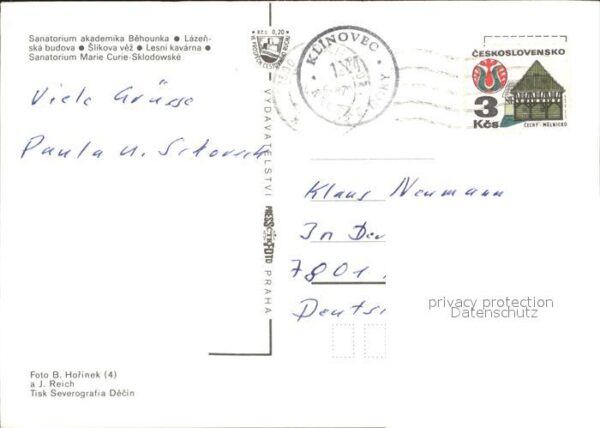 Sanatorium akademika Běhounka ● Lázeň-
ská budova ● Šlikova věž ● Lesní kavárna ●
Sanatorium Marie Curie-Sklodowské
Kčs 0,20
KLÍNOVEC
ČESKOSLOVENSKO
3
Kčs
ČECHY-MĚLNICKO
Viele Grüsse
Paula u.
VYDAVATELSTVÍ
PRESSFOTO
PRAHA
Klaus Neumann
In Der
7801
Deutsc
privacy protection
Datenschutz
Foto B. Hořínek (4)
a J. Reich
Tisk Severografia Děčín